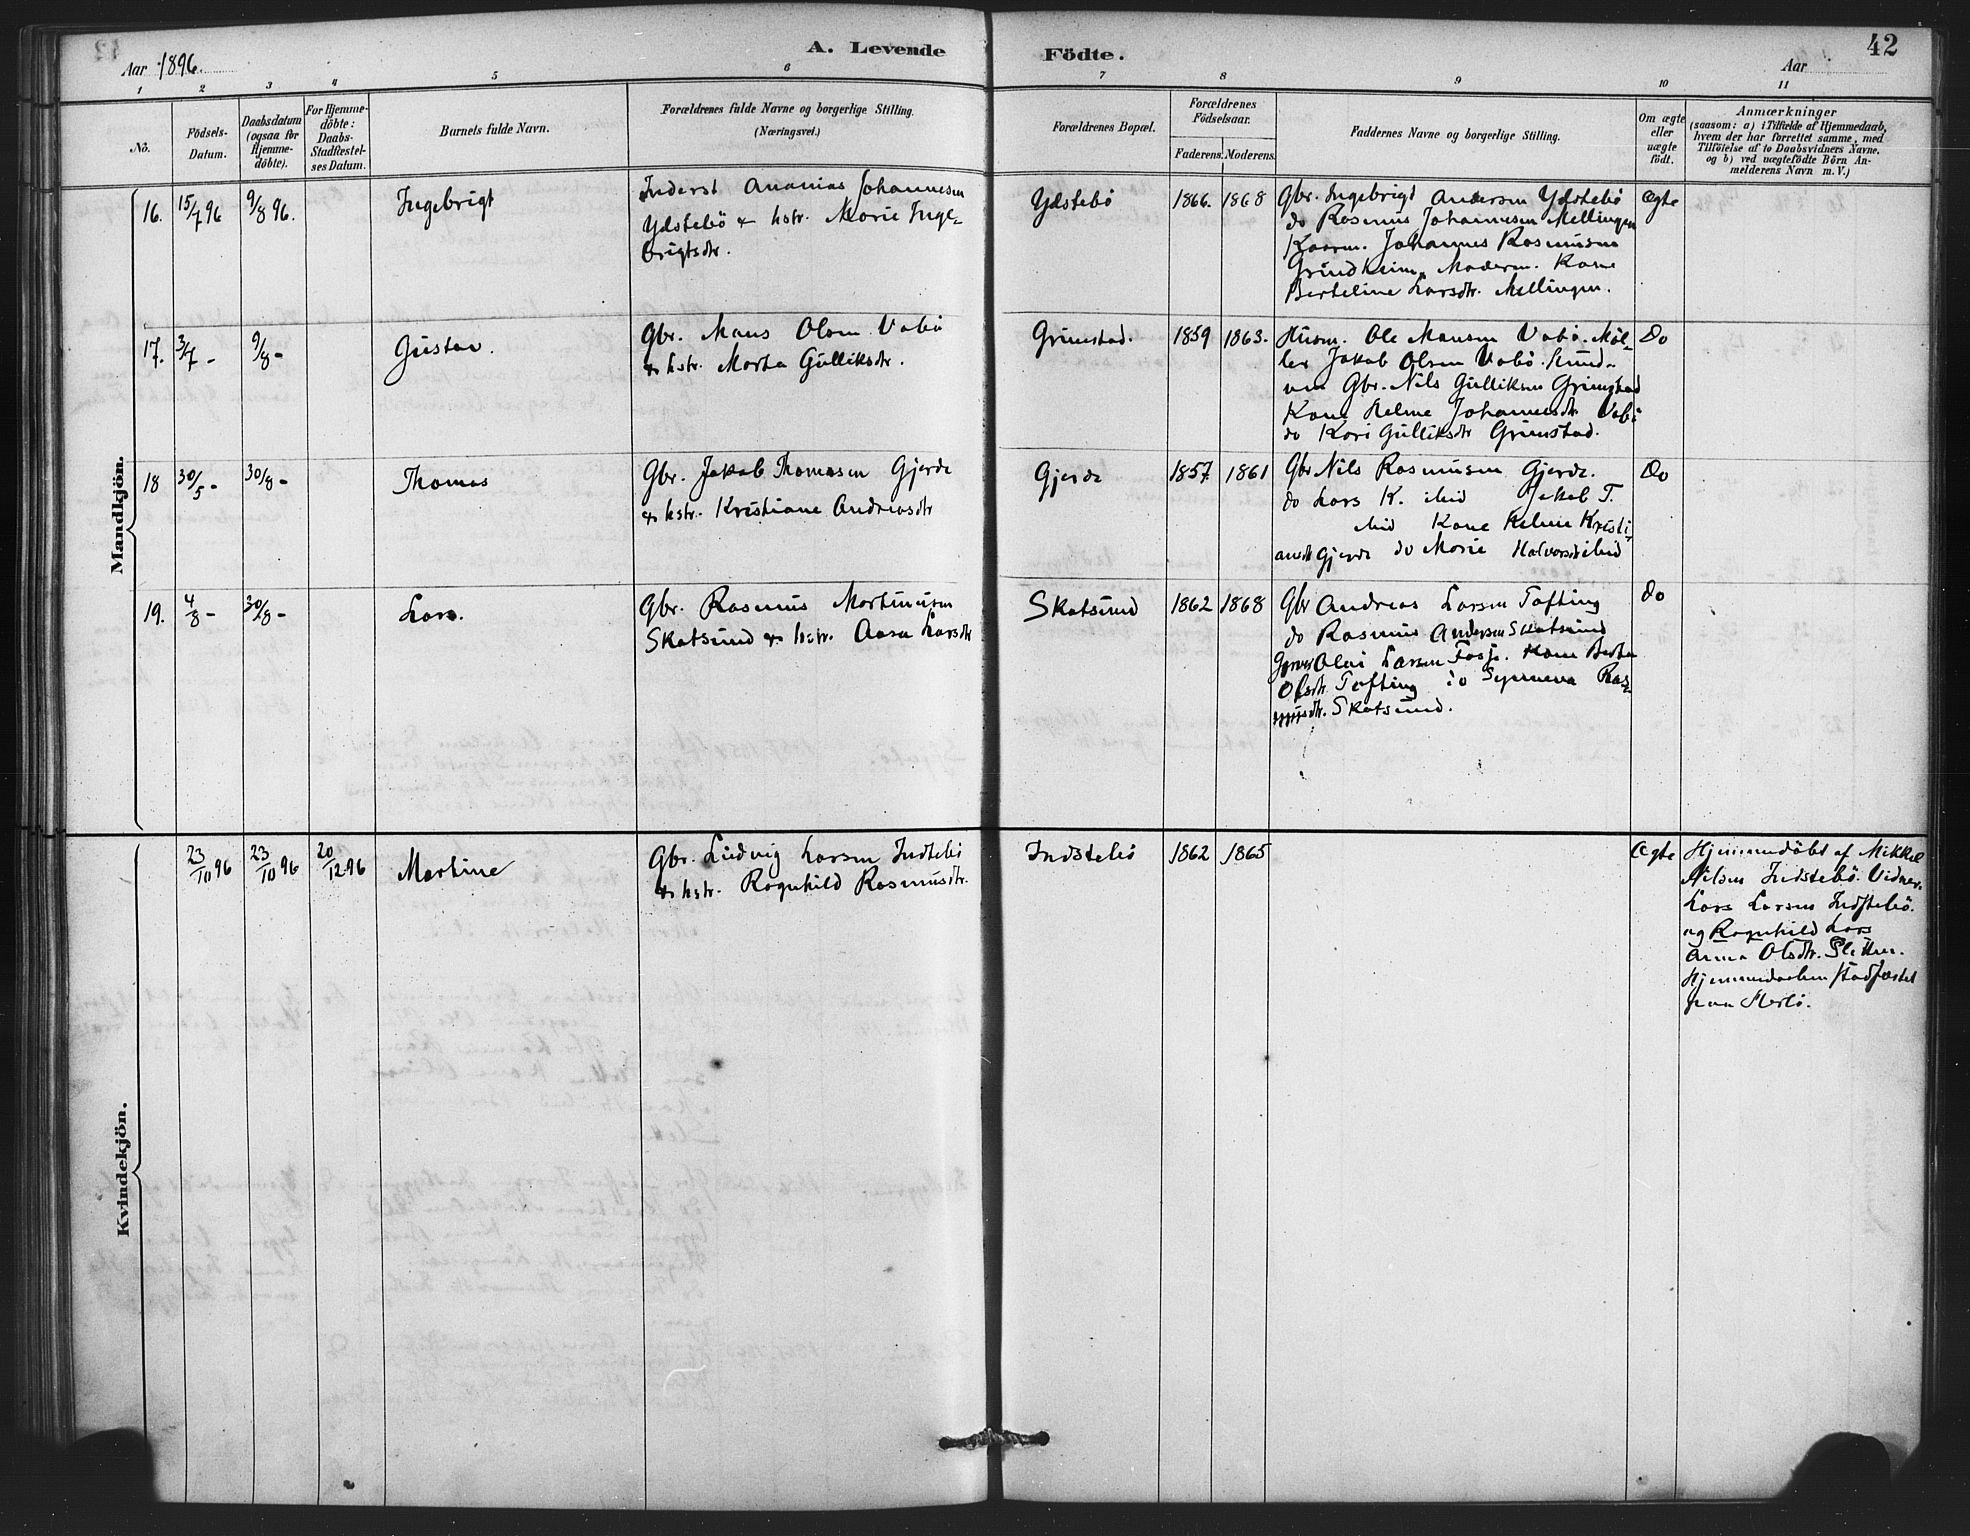 Aar 1896.
A. Levende
Födte.
42
Aar
1 2 3 4 5 6 7 8 9 10 11
No.
Födsels-
Datum.
Daabsdatum
(ogsaa for
Hjemme-
döbte).
For Hjemme-
döbte:
Daabs-
Stadfæstel-
ses Datum.
Barnets fulde Navn.
Forældrenes fulde Navne og borgerlige Stilling.
(Næringsvei.)
Forældrenes Bopæl.
Forældrenes
Födselsaar.
Faderens. Moderens.
Faddernes Navne og borgerlige Stilling.
Om ægte
eller
uægte
födt.
Anmærkninger
(saasom: a) i Tilfælde af Hjemmedaab,
hvem der har forrettet samme, med
Tilföielse af to Daabsvidners Navne.
og b) ved uægtefödte Börn An-
melderens Navn m. V.)
Mandkjön.
16. 15/7 96 9/8 96. Ingebrigt
Inderst Ananias Johannesen
Ydstebö & hstr. Marie Inge-
brigtsdtr.
Ydstebö 1866. 1868
Gbr. Ingebrigt Andersen Ydstebö
do Rasmus Johannesen Mellingen
Johannes Rasmusen
Grindheim. Kone
Berteline Larsdtr. Mellingen.
Ægte
17. 3/7 - 9/8 - Gustav.
Gbr. Mans Olsen Vabö
& hstr. Marta Gulliksdtr.
Grimstad. 1859 1863.
Husm. Ole Mansen Vabö. Möl-
ler Jakob Olsen Vabö.
Gbr. Nils Gulliksen Grimstad
Kone Helene Johannesdtr Vabö
do Kari Gulliksdtr Grimstad.
Do
18 30/5 - 30/8 - Thomas
Gbr. Jakob Thomasen Gjerde
& hstr. Kristiane Andreasdtr
Gjerde 1857. 1861
Gbr Nils Rasmusen Gjerde.
do Lars K. ibid Jakob T.
ibid Kone Helene Kristi-
ansdtr Gjerde do Marie Halvorsdtr ibid
Do
19. 4/8 - 30/8 - Lars.
Gbr. Rasmus Martinusen
Skatsund & hstr. Aasa Larsdtr
Skatsund 1862 1868
Gbr Andreas Larsen Tofting
do Rasmus Andersen Skatsund
Olai Larsen Fosse. Kone Berta
Olsdtr. Tofting do Synneva Ras-
musdtr. Skatsund.
do
Kvindekjön.
23/10 96 23/10 96 20/12 96 Martine
Gbr. Ludvig Larsen Indtebö
& hstr. Ragnhild Rasmusdtr.
Indstebö 1862 1865
Ægte
Hjemmedöbt af Mikkel
Nilsen Indstebö. Vidner.
Lars Larsen Indstebö.
og Ragnhild Lars
Anna Olsdtr. Sletten.
Hjemmedaaben stadfæstet
paa Sterlö.